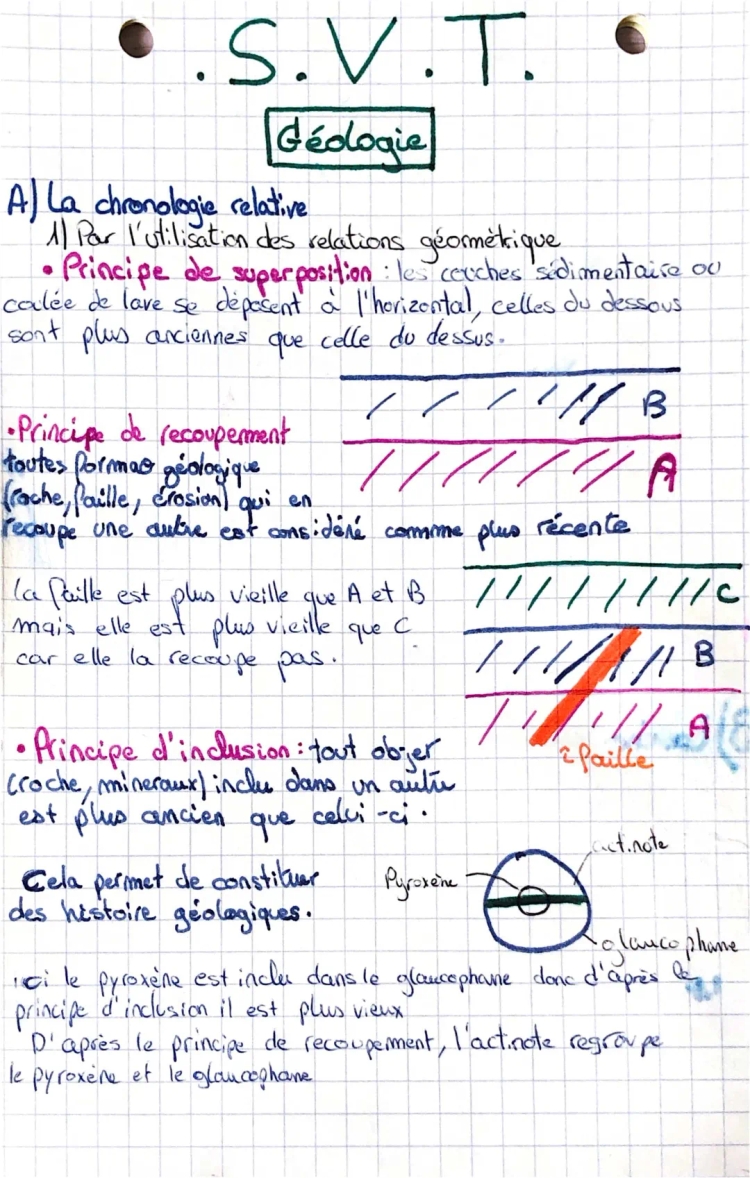 .S.V.T.
Géologie
A) La chronologie relative
1) Par l'utilisation des relations géométrique
• Principe de superposition : les couches sédimentaire ou
coulée de lave se déposent à l'horizontal, celles du dessous
sont plus anciennes que celle du dessus.
B
A
• Principe de recoupement
toutes formao géologique
(roche, faille, érosion) qui en
recoupe une autre est considéré commme plus récente
La faille est plus vieille que A et B
mais elle est plus vieille que C
car elle la recoupe pas.
C
B
A
faille
• Principe d'inclusion : tout objer
(roche, mineraux) inclu dans un autre
est plus ancien que celui-ci.
Cela permet de constituer
des histoire géologiques.
act.note
Pyroxène
glaucophane
ici le pyroxène est inclu dans le glaucophane donc d'après le
principe d'inclusion il est plus vieux
D'après le principe de recoupement, l'act.note regroupe
le pyroxène et le glaucophane